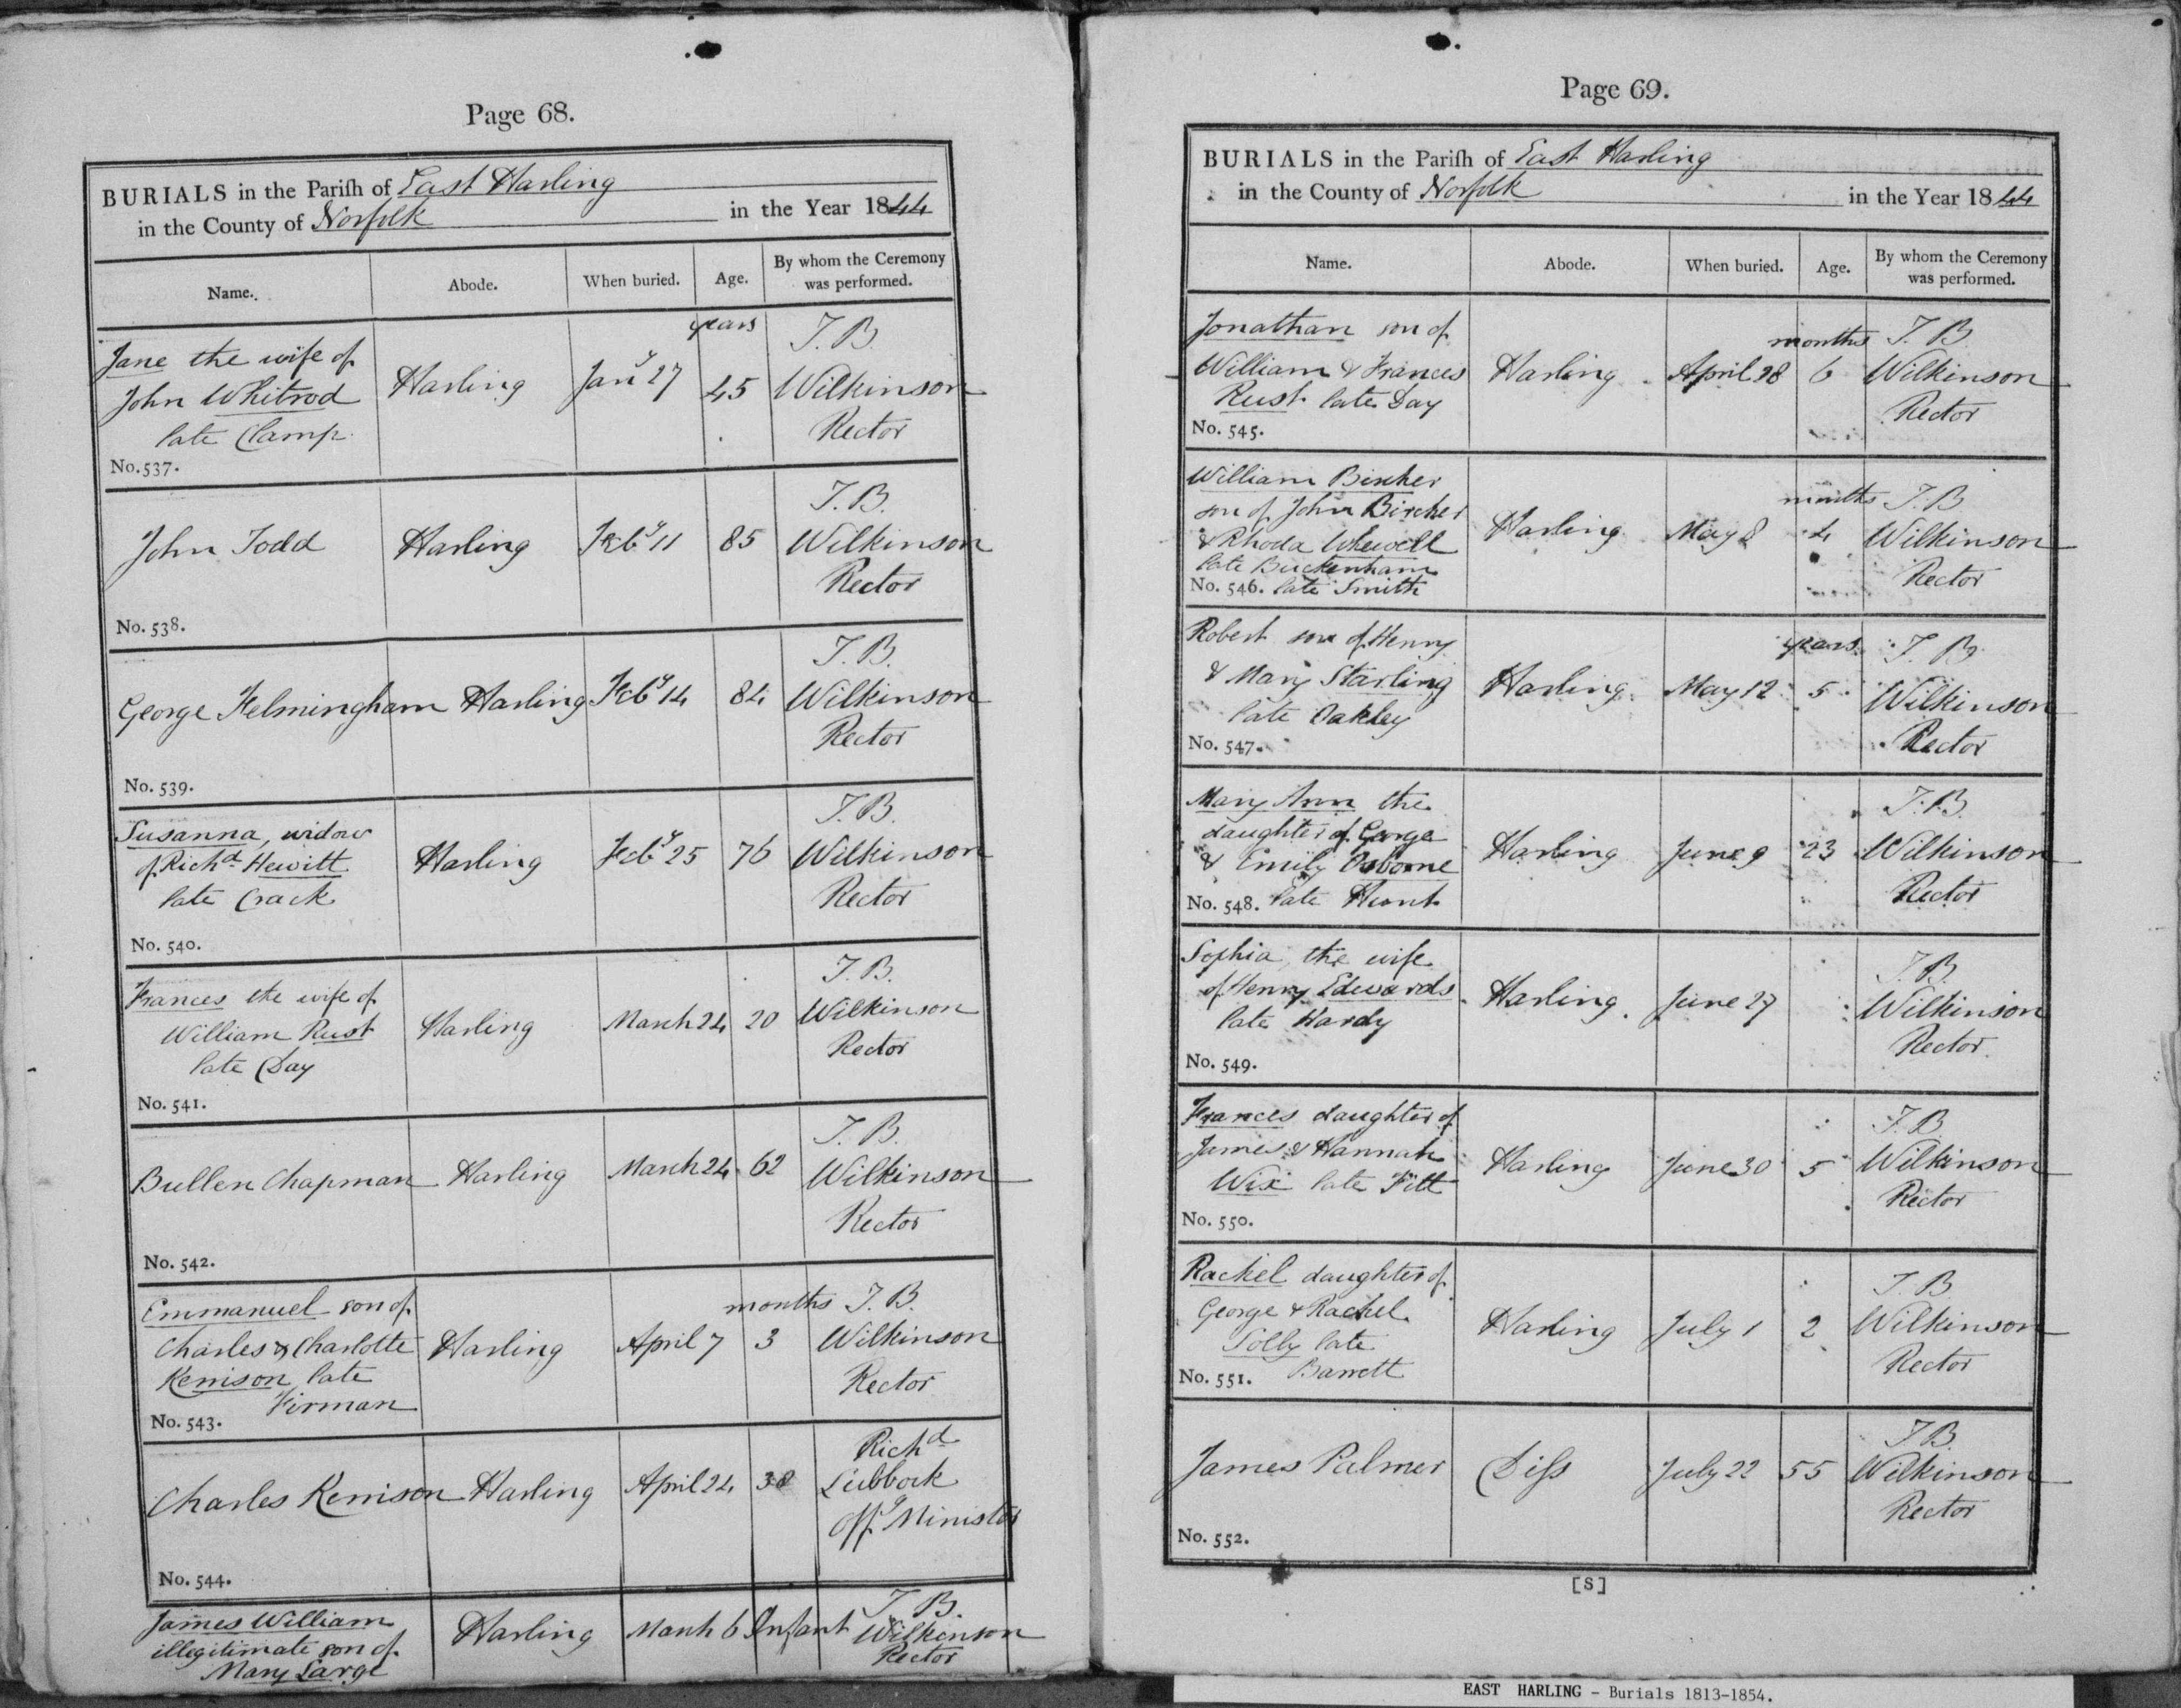 Page 68.
BURIALS in the Pariſh of East Harling
in the County of Norfolk in the Year 1844
Name. Abode. When buried. Age. By whom the Ceremony was performed.
Jane the wife of
John Whitrod
late Clamp
Harling Jany 27 years 45 T. B.
Wilkinson
Rector
No. 537.
John Todd Harling Feby 11 85 T. B.
Wilkinson
Rector
No. 538.
George Helmingham Harling Feby 14 84 T. B.
Wilkinson
Rector
No. 539.
Susanna, widow
of Richd Hewitt
late Crack
Harling Feby 25 76 T. B.
Wilkinson
Rector
No. 540.
Frances the wife of
William Rust
late Day
Harling March 24 20 T. B.
Wilkinson
Rector
No. 541.
Bullen Chapman Harling March 24 62 T. B.
Wilkinson
Rector
No. 542.
Emmanuel son of
Charles & Charlotte
Kenison late
Firman
Harling April 7 months 3 T. B.
Wilkinson
Rector
No. 543.
Charles Kenison Harling April 24 38 Richd
Lubbock
Offg Minister
No. 544.
James William
illegitimate son of
Mary Large
Harling March 6 Infant T. B.
Wilkinson
Rector
Page 69.
BURIALS in the Pariſh of East Harling
in the County of Norfolk in the Year 1844
Name. Abode. When buried. Age. By whom the Ceremony was performed.
Jonathan son of
William & Frances
Rust late Day
Harling April 28 months 6 T. B.
Wilkinson
Rector
No. 545.
William Bircher
son of John Bircher
& Rhoda Whewell
late Buckenham
No. 546. late Smith
Harling May 8 months 4 T. B.
Wilkinson
Rector
Robert son of Henry
& Mary Starling
late Oakley
Harling May 12 years 5 T. B.
Wilkinson
Rector
No. 547.
Mary Ann the
daughter of George
& Emily Osborne
No. 548. late Hunt
Harling June 9 23 T. B.
Wilkinson
Rector
Sophia, the wife
of Henry Edwards
late Hardy
Harling June 27 T. B.
Wilkinson
Rector
No. 549.
Frances daughter of
James & Hannah
Wix late Fitt
Harling June 30 5 T. B.
Wilkinson
Rector
No. 550.
Rachel daughter of
George & Rachel
Solly late
No. 551. Barrett
Harling July 1 2 T. B.
Wilkinson
Rector
James Palmer Diſs July 22 55 T. B.
Wilkinson
Rector
No. 552.
[S]
EAST HARLING - Burials 1813-1854.